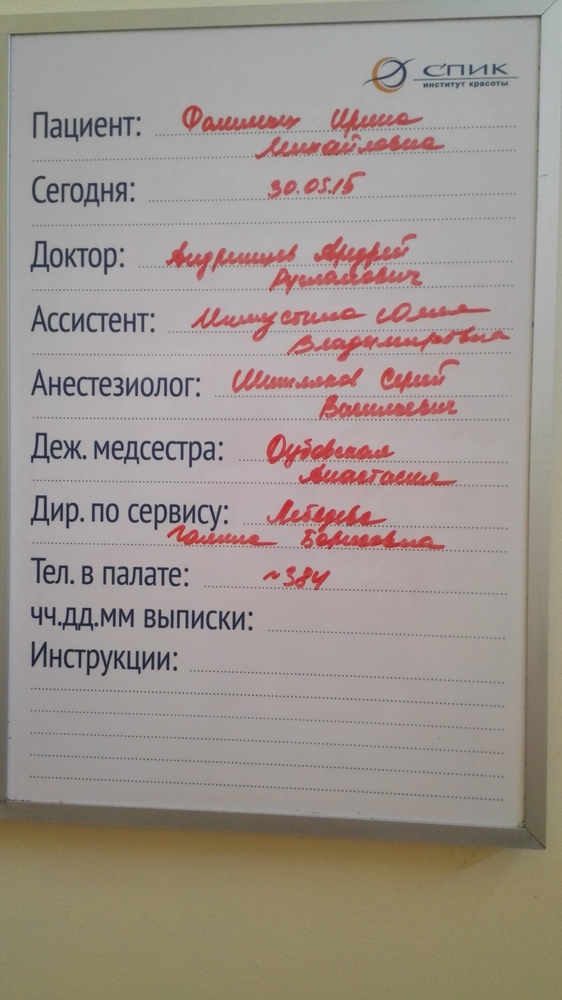 СПИК
институт красоты
Пациент: Ирина
Михайловна
Сегодня: 30.05.15
Доктор: Андрей
Русланович
Ассистент: Юлия
Владимировна
Анестезиолог: Сергей
Васильевич
Деж. медсестра: Дубовская
Анастасия
Дир. по сервису: Лебедева
Галина Борисовна
Тел. в палате: ~384
чч.дд.мм выписки:
Инструкции: